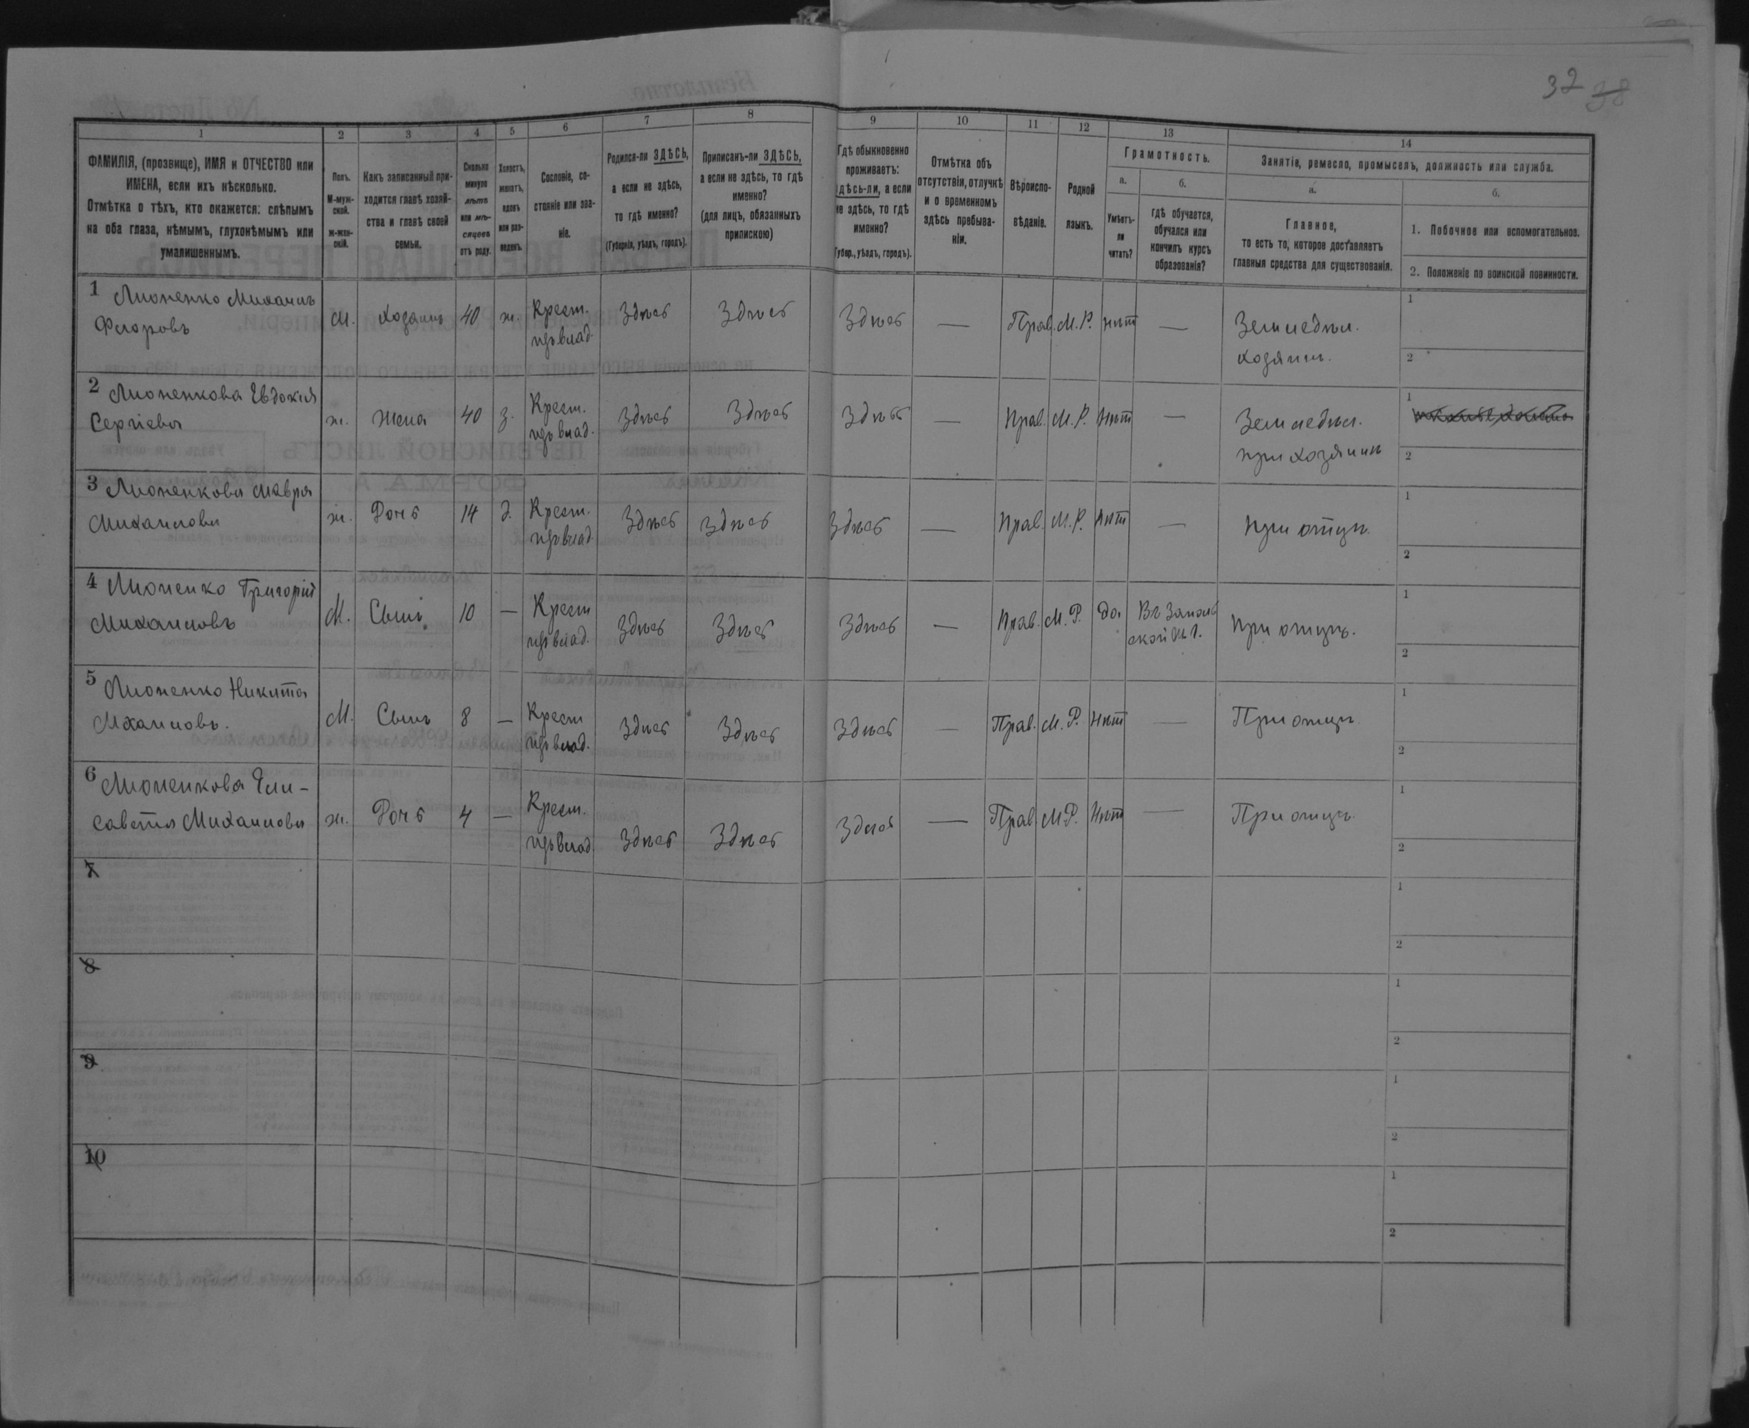 32 38
1
2
3
4
5
6
7
8
9
10
11
12
13
14
ФАМИЛІЯ, (прозвище), ИМЯ и ОТЧЕСТВО или
ИМЕНА, если ихъ нѣсколько.
Отмѣтка о тѣхъ, кто окажется: слѣпымъ
на оба глаза, нѣмымъ, глухонѣмымъ или
умалишеннымъ.
Полъ.
М-муж-
ской.
ж-жен-
скій.
Какъ записанный при-
ходится главѣ хозяй-
ства и главѣ своей
семьи.
Сколько
минуло
лѣтъ
или мѣ-
сяцевъ
отъ роду.
Холостъ,
женатъ,
вдовъ
или раз-
веденъ.
Сословіе, со-
стояніе или зва-
ніе.
Родился-ли ЗДѢСЬ,
а если не здѣсь,
то гдѣ именно?
(Губернія, уѣздъ, городъ).
Приписанъ-ли ЗДѢСЬ,
а если не здѣсь, то гдѣ
именно?
(для лицъ, обязанныхъ
припискою)
Гдѣ обыкновенно
проживаетъ:
здѣсь-ли, а если
не здѣсь, то гдѣ
именно?
(Губер., уѣздъ, городъ).
Отмѣтка объ
отсутствіи, отлучкѣ
и о временномъ
здѣсь пребыва-
ніи.
Вѣроиспо-
вѣданіе.
Родной
языкъ.
Грамотность.
а.
Умѣетъ-
ли
читать?
б.
гдѣ обучается,
обучался или
кончилъ курсъ
образованія?
Занятіе, ремесло, промыселъ, должность или служба.
а.
Главное,
то есть то, которое доставляетъ
главныя средства для существованія.
б.
1. Побочное или вспомогательное.
2. Положеніе по воинской повинности.
1 Лионенко Михаилъ
Фиоровъ
М. хозяинъ 40 ж. Крест. Здѣсь Здѣсь Здѣсь — Прав. М.Р. нѣтъ — Земледѣл.
хозяинъ.
1
2
2 Лионенкова Евдокія
Сергіева
ж. жена 40 з. Крест. Здѣсь Здѣсь Здѣсь — Прав. М.Р. Нѣтъ — Земледѣл.
при хозяинѣ
1
2
3 Лионенкова Мавра
Михаилова
ж. Дочь 14 д. Крест. Здѣсь Здѣсь Здѣсь — Прав. М.Р. Нѣтъ — при отцѣ.
1
2
4 Лионенко Григорій
Михаиловъ
М. Сынъ 10 — Крест Здѣсь Здѣсь Здѣсь — Прав. М.Р. да при отцѣ.
1
2
5 Лионенко Никита
Мхаиловъ.
М. Сынъ 8 — Крест Здѣсь Здѣсь Здѣсь — Прав. М.Р. Нѣтъ — При отцѣ.
1
2
6 Лионенкова Ели-
савета Михаилова
ж. Дочь 4 — Крест. Здѣсь Здѣсь Здѣсь — Прав М.Р. Нѣтъ — При отцѣ
1
2
7
1
2
8
1
2
9
1
2
10
1
2